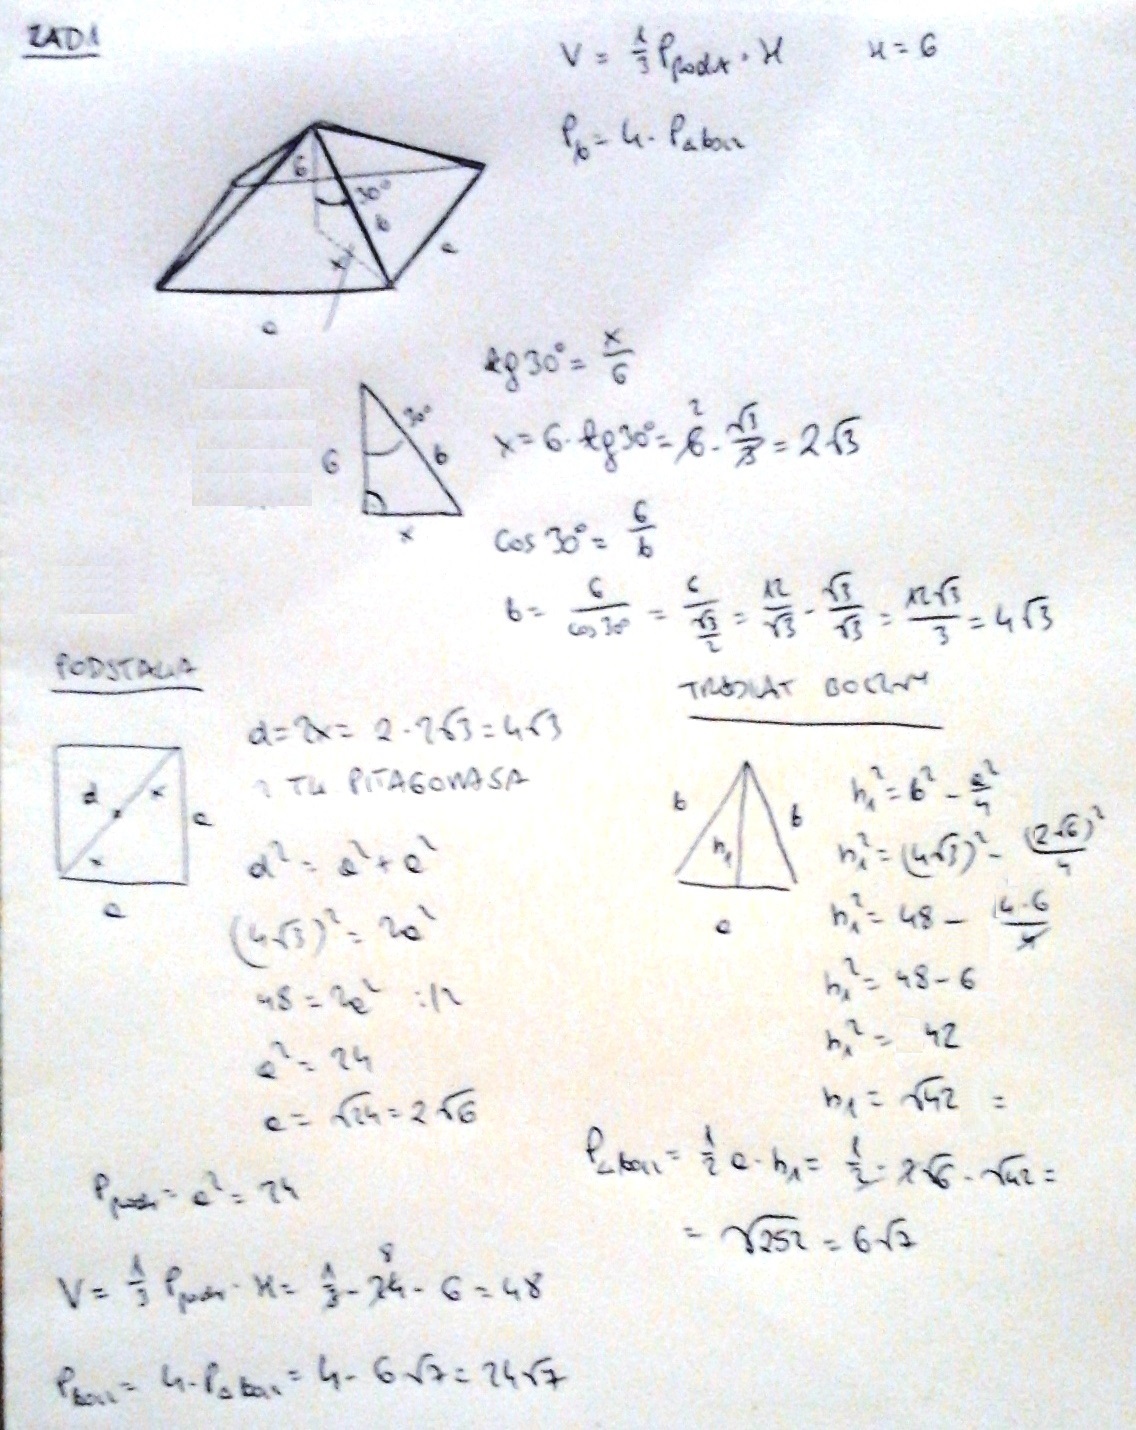 ZAD1
V = 1/3 Ppodst · H    H = 6
Pb = 4 · PΔbocz
6
30°
b
x
a
a
tg 30° = x/6
30°
6
b
x
x = 6 · tg 30° = 6 · √3/3 = 2√3
2
cos 30° = 6/b
b = 6/cos 30° = 6/(√3/2) = 12/√3 · √3/√3 = 12√3/3 = 4√3
PODSTAWA
d
x
x
a
a
d = 2x = 2 · 2√3 = 4√3
z TW PITAGORASA
d² = a² + a²
(4√3)² = 2a²
48 = 2a² :/2
a² = 24
a = √24 = 2√6
TRÓJKĄT BOCZNY
b
b
h₁
a
h₁² = b² - a²/4
h₁² = (4√3)² - (2√6)²/4
h₁² = 48 - 4·6/4
h₁² = 48 - 6
h₁² = 42
h₁ = √42 =
PΔbocz = 1/2 a · h₁ = 1/2 · 2√6 · √42 =
= √252 = 6√7
Ppodst = a² = 24
V = 1/3 Ppodst · H = 1/3 · 24 · 6 = 48
8
Pbocz = 4 · PΔbocz = 4 · 6√7 = 24√7